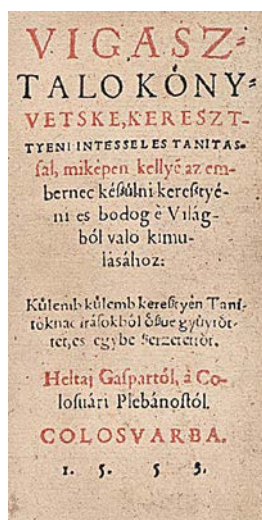 VIGASZ⸗
TALO KÖNY⸗
VETSKE, KERESZT-
TYENI INTESSEL ES TANITAS-
sal, miképen kellyē az em-
bernec késßülni keresztyé-
ni es bodog è Világ-
ból valo kimu-
lásához:
Külemb külemb keresztyén Tani-
tóknac irásokból ößue gyüyröt-
tet, es egybe Serzetetöt.
Heltaj Gaspartól, à Co-
losuári Plebánostól.
COLOSVARBA.
1. 5. 5 3.